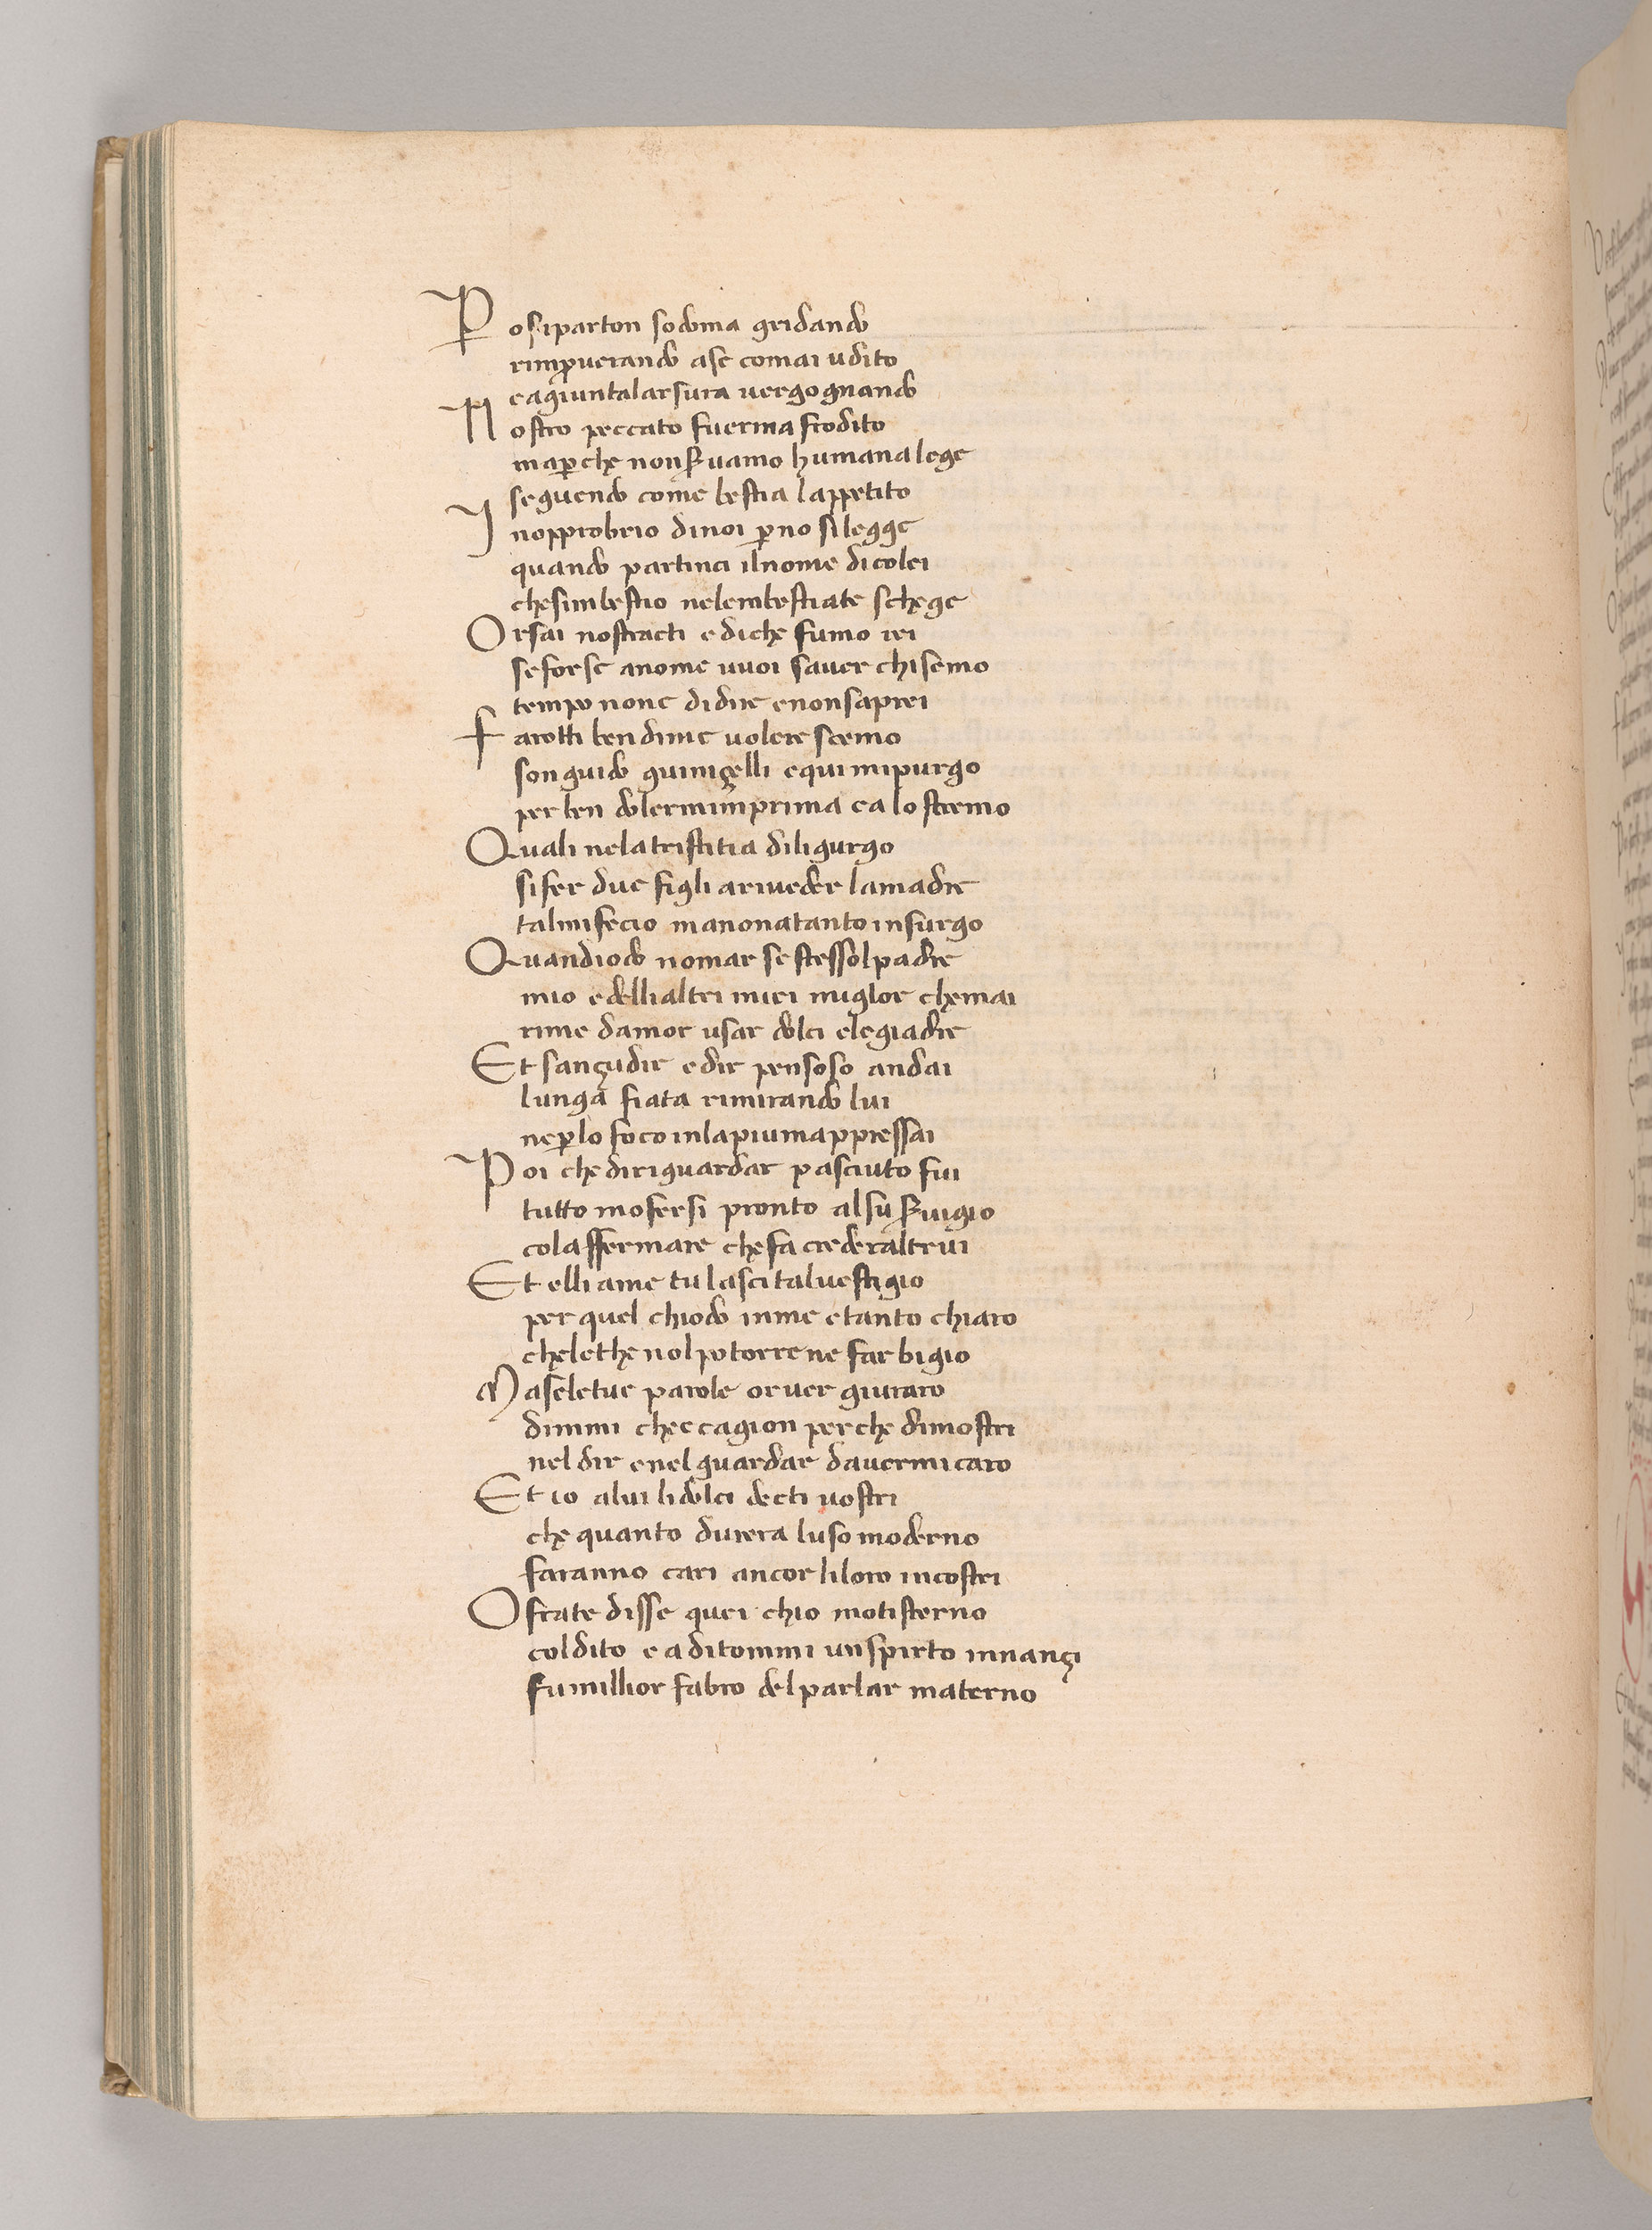 Posiparton sodoma gridando
rimꝓverando ase comai udito
eagiuntalarsura vergognando
Nostro peccato fu ermafrodito
mapche nonẜvamo humana lege
seguendo come bestia lappetito
Inopprobrio dinoi pno silegge
quando partinci ilnome dicolei
chesimbestio nelembestiate schege
Orsai nostracti ediche fumo rei
seforse anome vuoi saver chisemo
tempo none didire enonsaprei
Farotti bendime volere scemo
son guido guiniçelli equi mipurgo
per ben dolermiinprima ca lo stremo
Quali nelatristitia diligurgo
sifer due figli ariveder lamadre
talmifecio manonatanto insurgo
Quandiodo nomar sestessolpadre
mio edellialtri miei miglor chemai
rime damor usar dolci elegiadre
Et sançudir edir pensoso andai
lunga fiata rimirando lui
neplo foco inlapiumappressai
Poi che diriguardar pasciuto fui
tutto mofersi pronto alsu ẜvigio
colaffermare chefa crederaltrui
Et elli ame tu lasci talvestigio
per quel chiodo inme etanto chiaro
chelethe nolpotorre ne far bigio
Maseletue parole orver giuraro
dimmi checcagion perche dimostri
nel dir enel guardar davermi caro
Et io alui lidolci decti vostri
che quanto durera luso moderno
faranno cari ancor liloro incostri
O frate disse quei chio motisterno
coldito e aditommi un spirto innançi
fu millior fabro delparlar materno